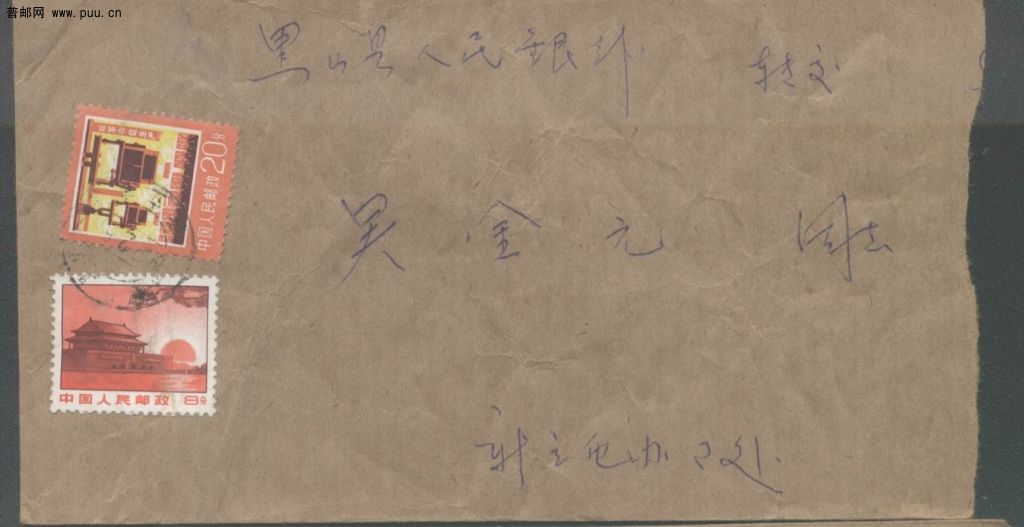 普邮网 www.puu.cn
黑山县人民银行 转交
20分
中国人民邮政
吴金元 同志
中国人民邮政 8分